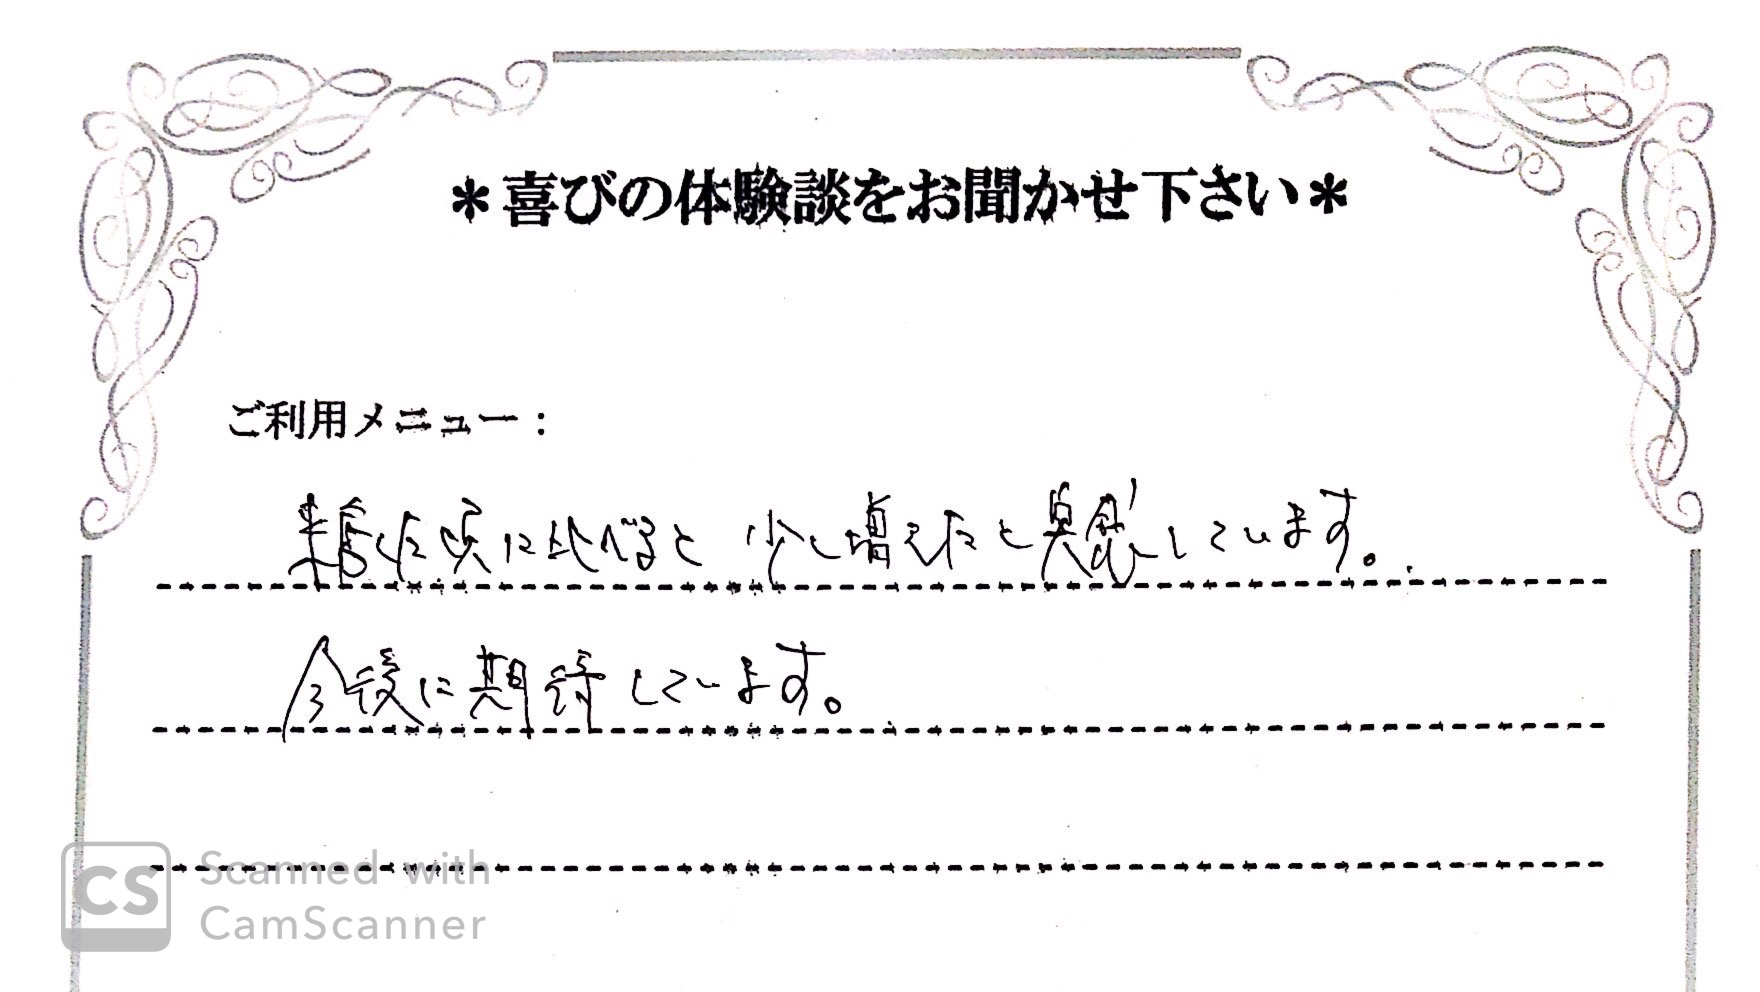 ＊喜びの体験談をお聞かせ下さい＊
ご利用メニュー：
来店した頃に比べると 少し増えたと実感しています。
今後に期待しています。
CS Scanned with
CamScanner